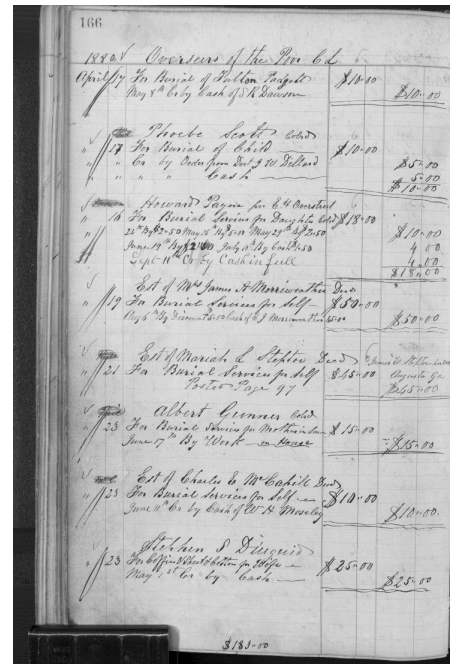 166
1880 Overseers of the Poor Cd
April 17 For Burial of Fulton Padgett $10.00
May 8th Cr by Cash of S R Dawson $10.00
Phoebe Scott Colrd
" 17 For Burial of Child $10.00
" " Cr by Order from Doc J W Dillard $5.00
" " " " Cash 5.00
$10.00
Howard Payne per E H Overstreet
" 16 For Burial Services for Daughter Colrd $18.00
24th By $2.50 May 15 By $5.00 May 29th By $2.50 $10.00
June 19th By $2.00 July 10th By Cash 1.50 4.00
Sept 11th Cr by Cash in full 4.00
$18.00
Est of Mrs James A Merriweather Decd
" 19 For Burial Services for Self $50.00
Aug 6th By Discount 5.00 Cash of J Merriweather 45.00 $50.00
Est of Mariah L Steptoe Decd James W Steptoe
" 21 For Burial Services for Self $45.00 Augusta Ga
Posted Page 97 $45.00
Albert Gunner Colrd
" 23 For Burial Services for Mother in Law $15.00
June 17th By Work on House $15.00
Est of Charles E McCahill Decd
" 23 For Burial Services for Self $10.00
June 11th Cr by Cash of W H Moseley $10.00
Stephen S Diuguid
" 23 For Coffin & Burial for Wife $25.00
May 1st Cr by Cash $25.00
$183.00